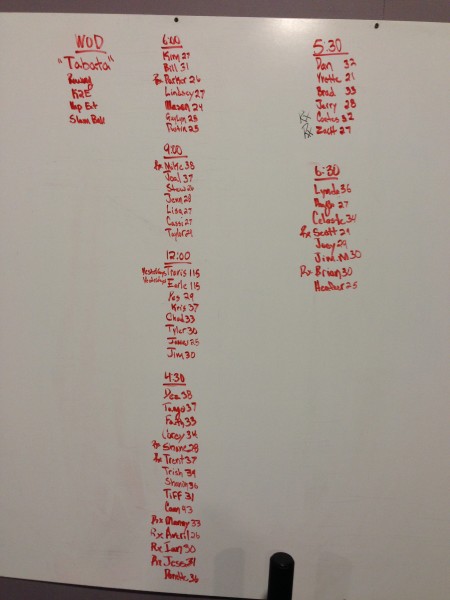 WOD
"Tabata"
Rowing
K2E
Hip Ext
Slam Ball
6:00
Kim 27
Bill 31
Rx Parker 26
Lindsey 27
Mason 24
Gaylyn 28
Dustin 25
9:00
Rx Mike 38
Joal 37
Stew 26
Jenn 28
Lisa 27
Cassi 27
Taylor 29
12:00
Yesterdays Travis 115
Yesterdays Earle 115
29
Kris 37
Chad 33
Tyler 30
James 25
Jim 30
4:30
Dee 38
Tanya 37
Faith 33
Corey 34
Rx Shane 28
Rx Trent 37
Trish 39
Sharon 36
Tiff 31
Cam 43
Rx Manny 33
Rx Averil 26
Rx Ian 30
Rx Jesse
36
5:30
Dan 32
Yvette 21
Brad 33
Jerry 28
Rx 32
Rx Zach 27
6:30
Lynda 36
27
Celeste 34
Rx Scott 29
Joey 29
Jim.M 30
Rx Brian 30
Heather 25